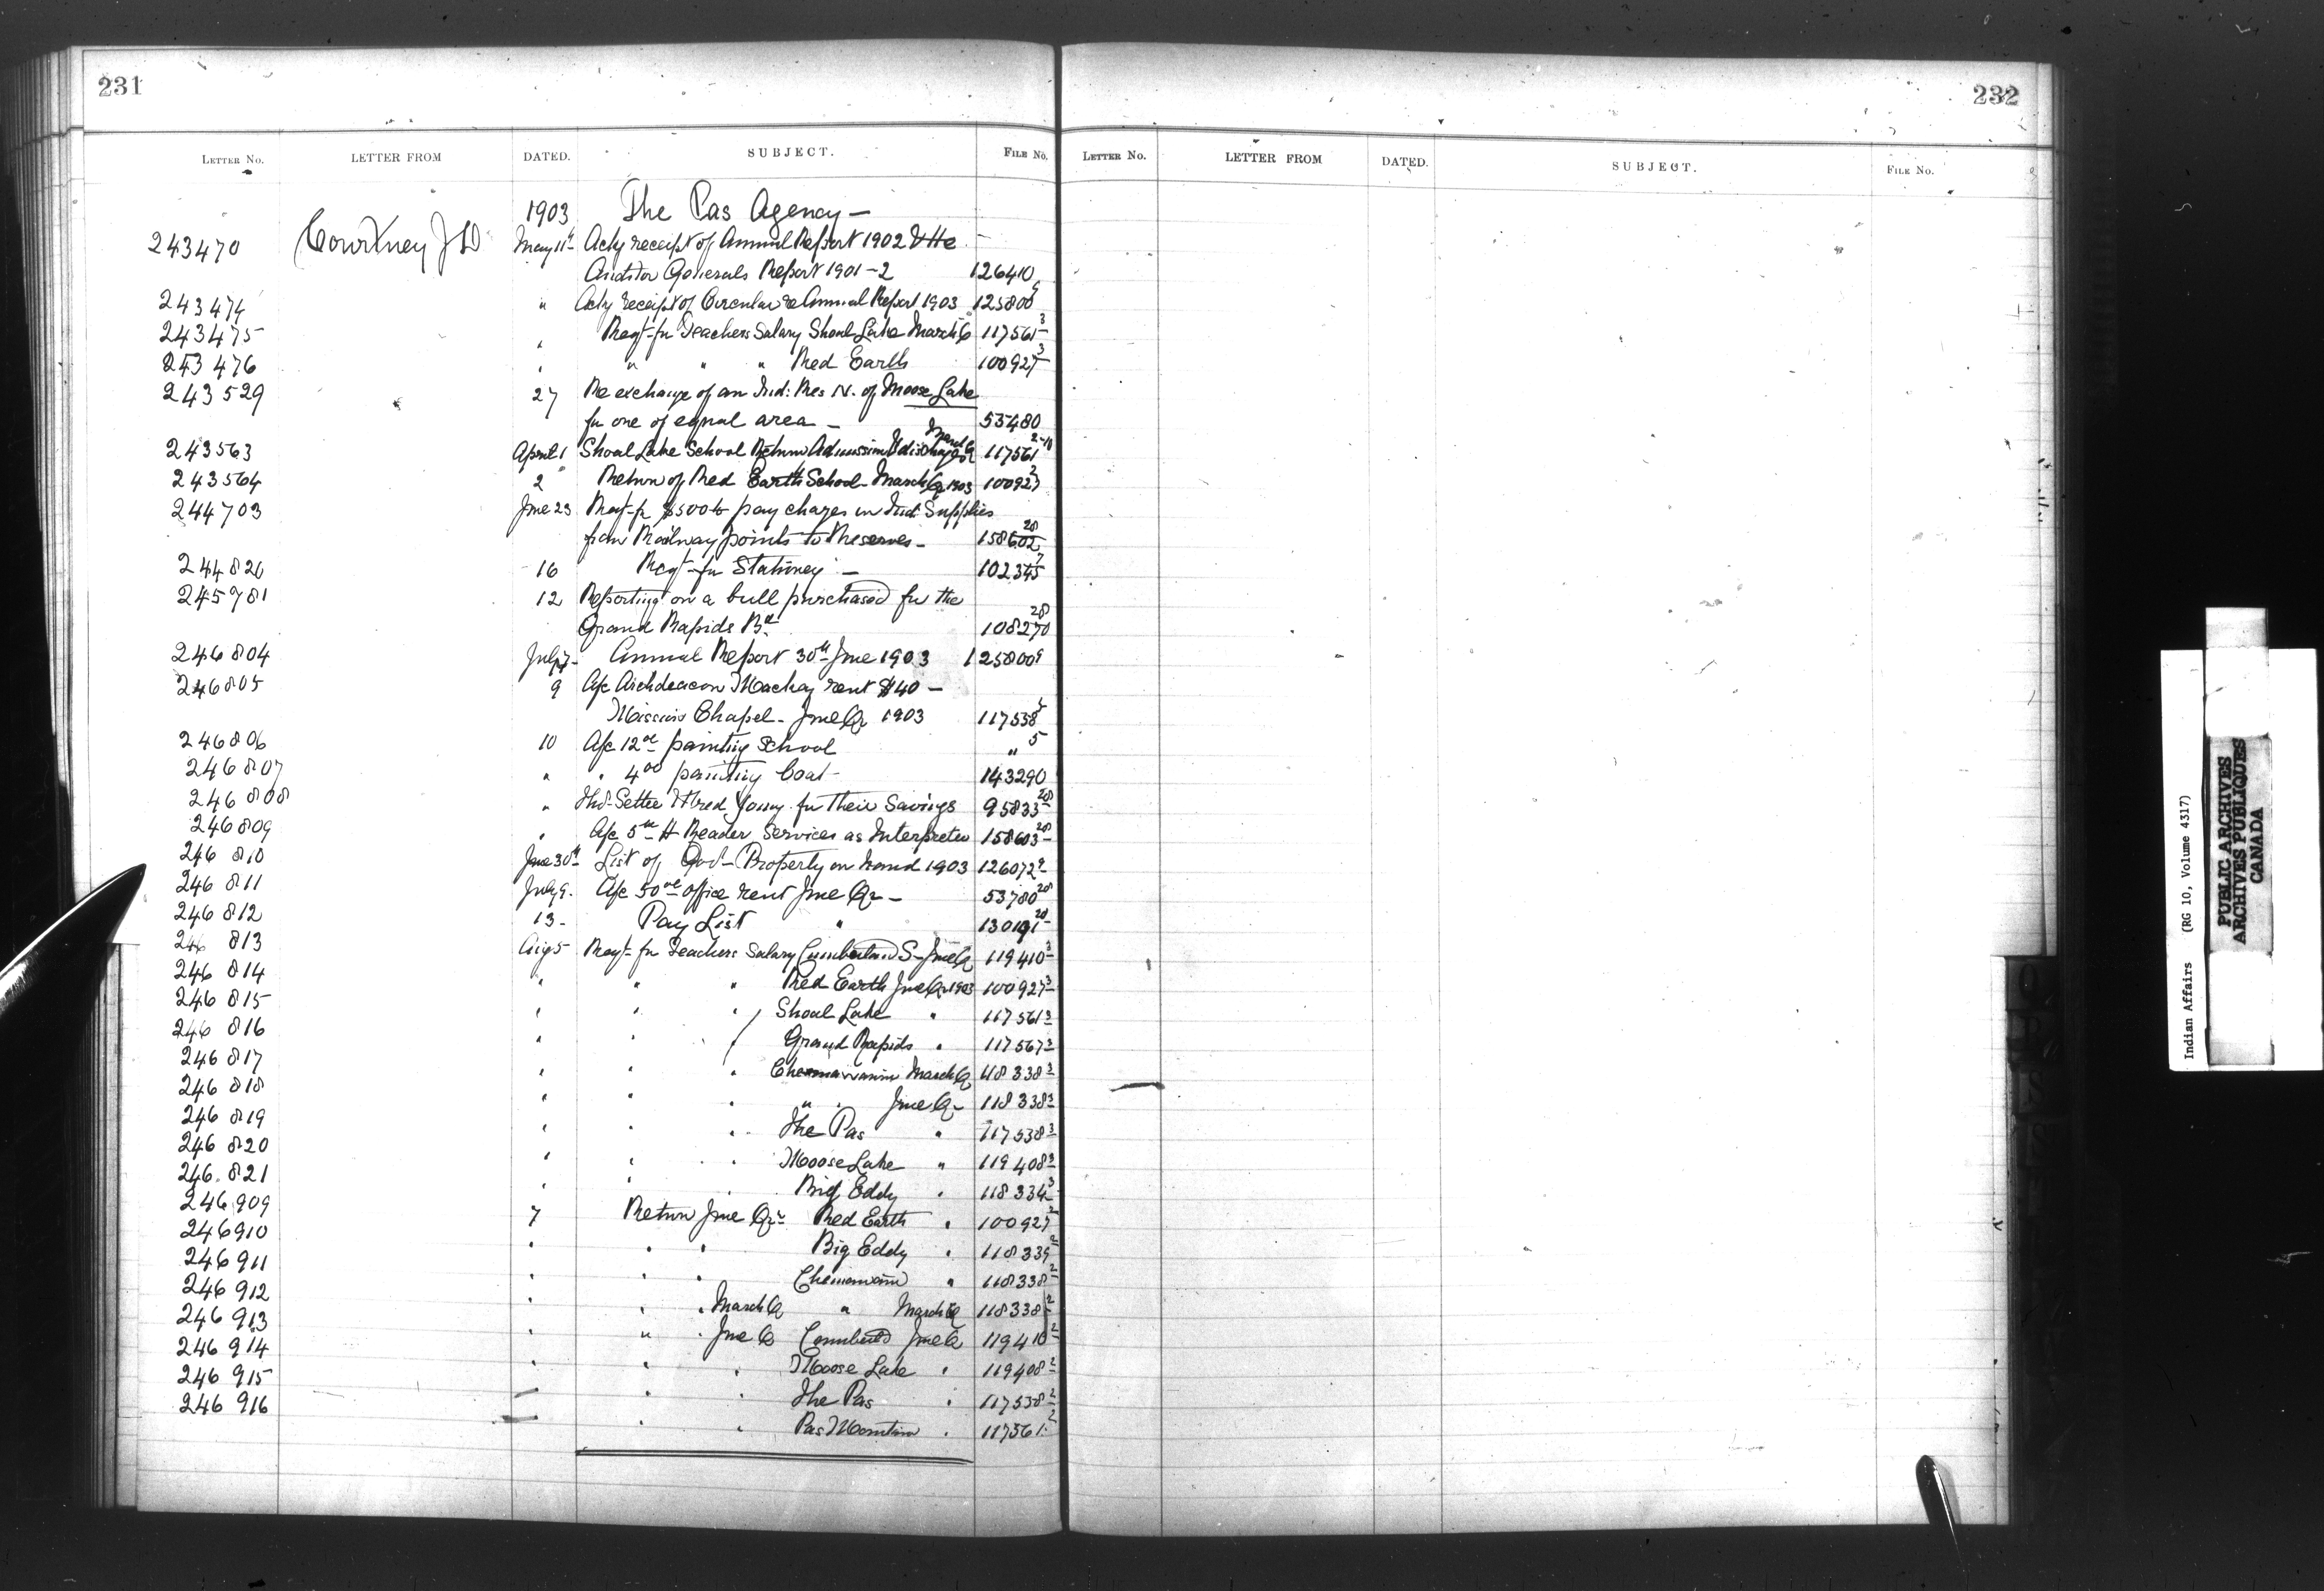 231
LETTER No. LETTER FROM DATED. SUBJECT. FILE No.
1903 The Pas Agency —
243470 Courtney J D May 11th Ackg receipt of Annual Report 1902 & the
Auditor Generals Report 1901-2 126410
243474 " Ackg receipt of Circular re Annual Report 1903 125800 9
243475 " Reqt- for Teachers Salary Shoal Lake March Q 117561 3
243476 " " " " Red Earth 100927 3
243529 27 Re exchange of an Ind: Res N. of Moose Lake
for one of equal area — 53480
243563 April 1 Shoal Lake School Return Admission & discharge March Q 117561
243564 2 Return of Red Earth School - March Qr 1903 100927 2
244703 June 23 Reqt- for $500 to pay charges on Ind: Supplies
from Railway points to Reserves — 158602 28
244820 16 Reqt- for Stationery — 102345 7
245981 12 Reporting on a bull purchased for the
Grand Rapids Bd 108270 28
246804 July 7- Annual Report 30th June 1903 125800 9
246805 9 A/c Archdeacon Mackay rent $40 —
Mission Chapel - June Qr 1903 117538 5
246806 10 A/c 12 00 painting School " 5
246807 " " 4 00 painting boat - 143290
246808 " Thos Settee & Fred Young for their Savings 95833 28
246809 " A/c 5 00 H Reader Services as Interpreter 158603 28
246 810 June 30th List of Govt- Property on hand 1903 126072 9
246 811 July 9. A/c 50 00 office rent June Qr — 53780 28
246 812 13- Pay List " 130191 28
246 813 Aug 5 Reqt- for Teachers Salary Cumberland S- June Q 119410 3
246 814 " " " Red Earth June Qr 1903 100927 3
246 815 " " " Shoal Lake " 117561 3
246 816 " " Grand Rapids " 117567 3
246 817 " " " Chemawawin March Q 118338 3
246 818 " " " " June Qr 118338 3
246 819 " " " The Pas " 117538 3
246 820 " " " Moose Lake " 119408 3
246.821 " " " Big Eddy " 118334 3
246,909 7 Return June Qr Red Earth " 100927 2
246910 " " " Big Eddy " 118339 2
246911 " " " Chemawawin " 118338 2
246912 " " " March Q " March Q 118338 2
246913 " " " June Q Cumberland June Q 119410 2
246914 " " " Moose Lake " 119408 2
246 915 " " The Pas " 117538 2
246 916 " " Pas Mountain " 117561 2
232
LETTER No. LETTER FROM DATED. SUBJECT. FILE No.
Indian Affairs (RG 10, Volume 4317)
PUBLIC ARCHIVES
ARCHIVES PUBLIQUES
CANADA